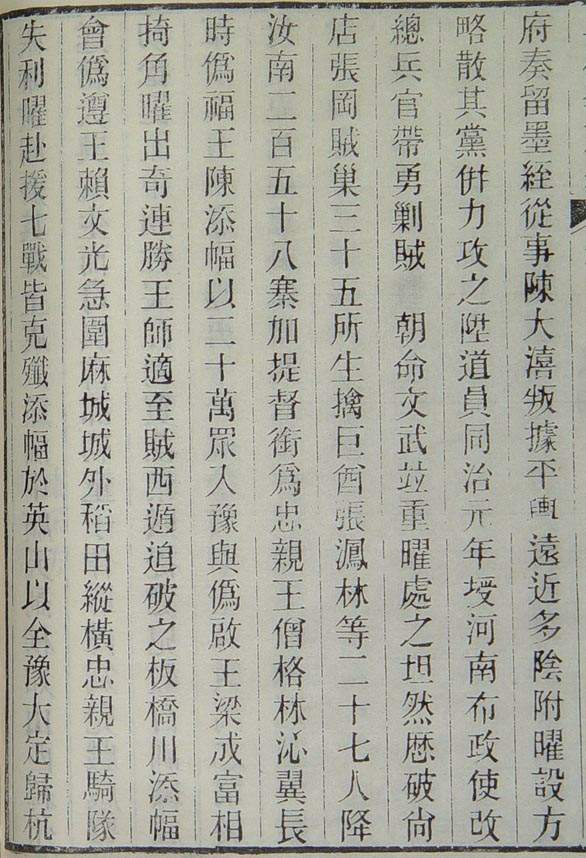 府奏留墨絰從事陳大濆叛據平輿遠近多陰附曜設方
略散其黨併力攻之陞道員同治元年授河南布政使改
總兵官帶勇剿賊　朝命文武竝重曜處之坦然厯破尙
店張岡賊巢三十五所生擒巨酋張鳳林等二十七人降
汝南二百五十八寨加提督銜爲忠親王僧格林沁翼長
時僞福王陳添幅以二十萬眾入豫與僞啟王梁成富相
掎角曜出奇連勝王師適至賊西遁追破之板橋川添幅
會僞遵王賴文光急圍麻城城外稻田縱橫忠親王騎隊
失利曜赴援七戰皆克殲添幅於英山以全豫大定歸杭